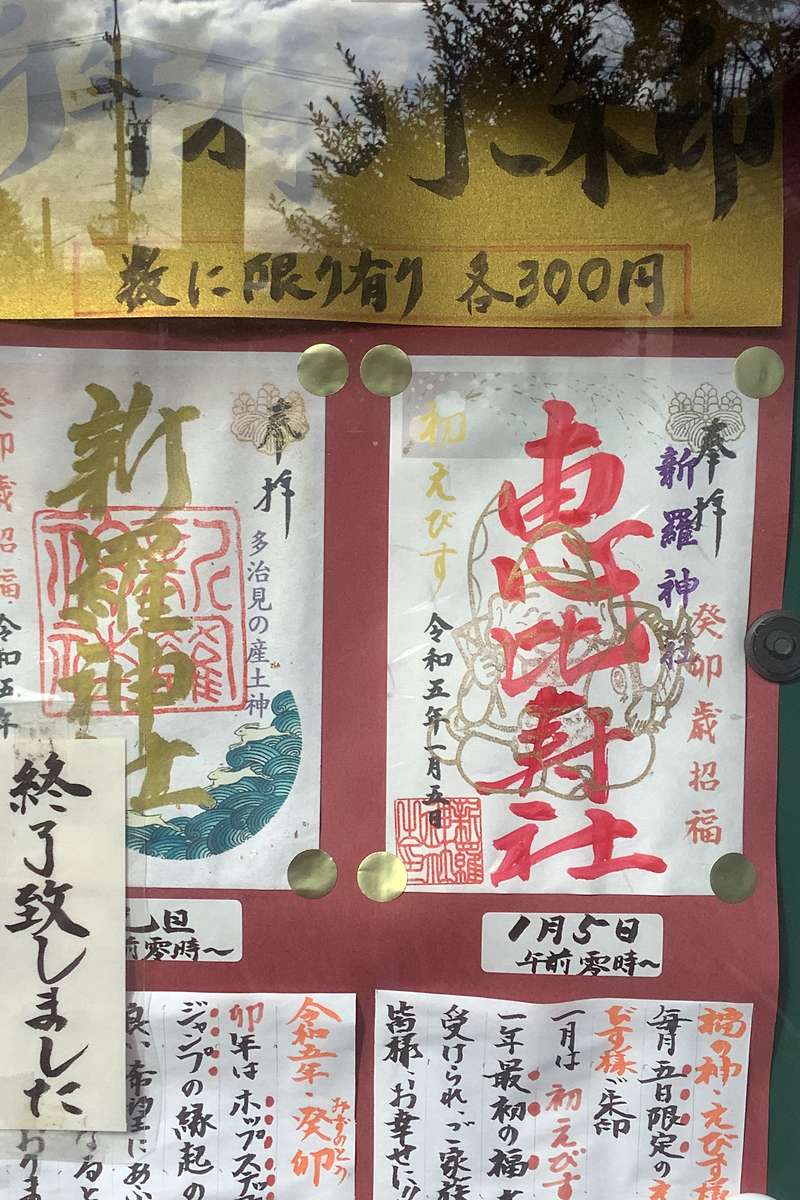 朱印
数に限り有り 各300円
奉拝
新羅神社
多治見の産土神
癸卯歳招福
令和五年
奉拝
新羅神社
癸卯歳招福
恵比寿社
初えびす
令和五年一月五日
終了致しました
元旦
午前零時~
1月5日
午前零時~
令和五年・癸卯
みずのとう
卯年はホップステップ
ジャンプの縁起の
良い希望にあふ
なると
おりま
福の神・えびす様
毎月五日限定の
びす様ご朱印
一月は初えびす
一年最初の福
受けられ、ご家族
皆様、お幸せに